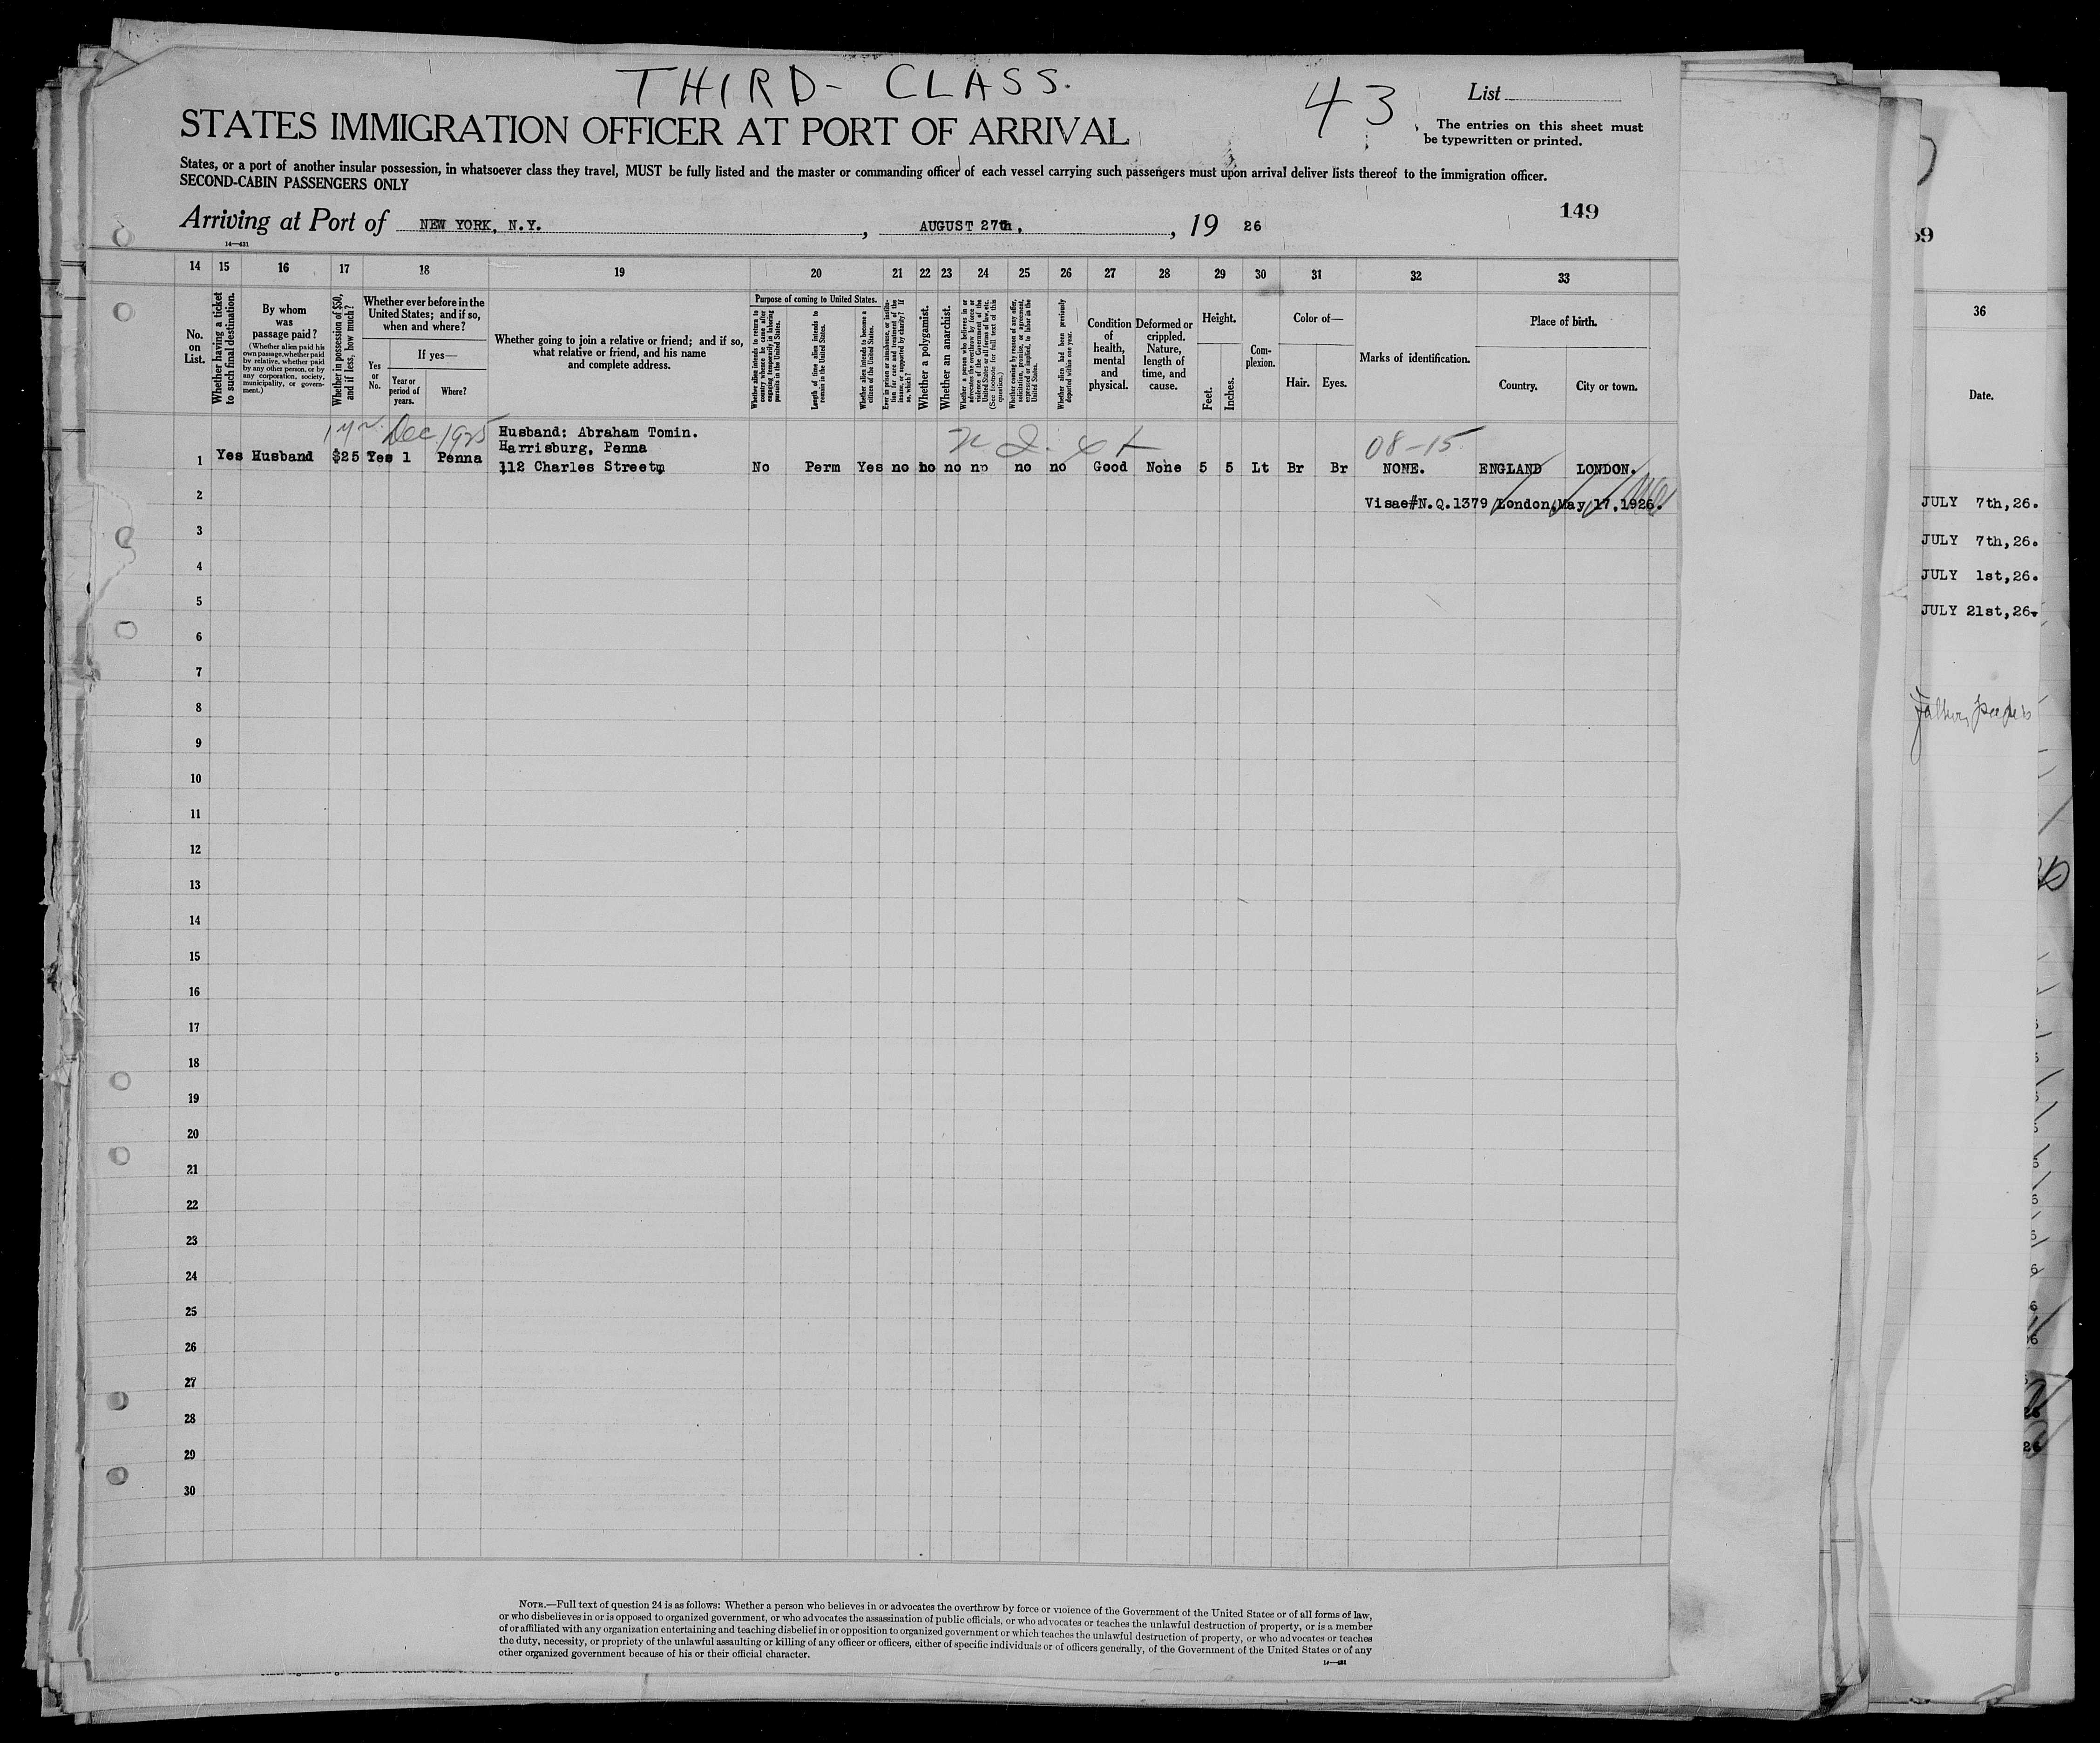 THIRD- CLASS.
43
List
STATES IMMIGRATION OFFICER AT PORT OF ARRIVAL
The entries on this sheet must
be typewritten or printed.
States, or a port of another insular possession, in whatsoever class they travel, MUST be fully listed and the master or commanding officer of each vessel carrying such passengers must upon arrival deliver lists thereof to the immigration officer.
SECOND-CABIN PASSENGERS ONLY
149
Arriving at Port of NEW YORK, N.Y. , AUGUST 27th, , 19 26
14—431
14 15 16 17 18 19 20 21 22 23 24 25 26 27 28 29 30 31 32 33
No. on List.
Whether having a ticket to such final destination.
By whom was passage paid?
(Whether alien paid his own passage, whether paid by relative, whether paid by any other person, or by any corporation, society, municipality, or government.)
Whether in possession of $50, and if less, how much?
Whether ever before in the United States; and if so, when and where?
Yes or No.
If yes—
Year or period of years.
Where?
Whether going to join a relative or friend; and if so, what relative or friend, and his name and complete address.
Purpose of coming to United States.
Whether alien intends to return to country whence he came after engaging temporarily in laboring pursuits in the United States.
Length of time alien intends to remain in the United States.
Whether alien intends to become a citizen of the United States.
Ever in prison or almshouse, or institution for care and treatment of the insane, or supported by charity? If so, which?
Whether a polygamist.
Whether an anarchist.
Whether a person who believes in or advocates the overthrow by force or violence of the Government of the United States or all forms of law, etc. (See footnote for full text of this question.)
Whether coming by reason of any offer, solicitation, promise, or agreement, expressed or implied, to labor in the United States.
Whether alien had been previously deported within one year.
Condition of health, mental and physical.
Deformed or crippled. Nature, length of time, and cause.
Height.
Feet.
Inches.
Complexion.
Color of—
Hair.
Eyes.
Marks of identification.
Place of birth.
Country.
City or town.
1 yr. Dec. 1925
Husband: Abraham Tomin.
Harrisburg, Penna
08-15
1 Yes Husband $25 Yes 1 Penna 112 Charles Street, No Perm Yes no no no no no no Good None 5 5 Lt Br Br NONE. ENGLAND LONDON.
2 Visae#N.Q.1379 London,May 17,1926.
3
4
5
6
7
8
9
10
11
12
13
14
15
16
17
18
19
20
21
22
23
24
25
26
27
28
29
30
NOTE.—Full text of question 24 is as follows: Whether a person who believes in or advocates the overthrow by force or violence of the Government of the United States or of all forms of law,
or who disbelieves in or is opposed to organized government, or who advocates the assassination of public officials, or who advocates or teaches the unlawful destruction of property, or is a member
of or affiliated with any organization entertaining and teaching disbelief in or opposition to organized government or which teaches the unlawful destruction of property, or who advocates or teaches
the duty, necessity, or propriety of the unlawful assaulting or killing of any officer or officers, either of specific individuals or of officers generally, of the Government of the United States or of any
other organized government because of his or their official character.
14—431
36
Date.
JULY 7th,26.
JULY 7th,26.
JULY 1st,26.
JULY 21st,26.